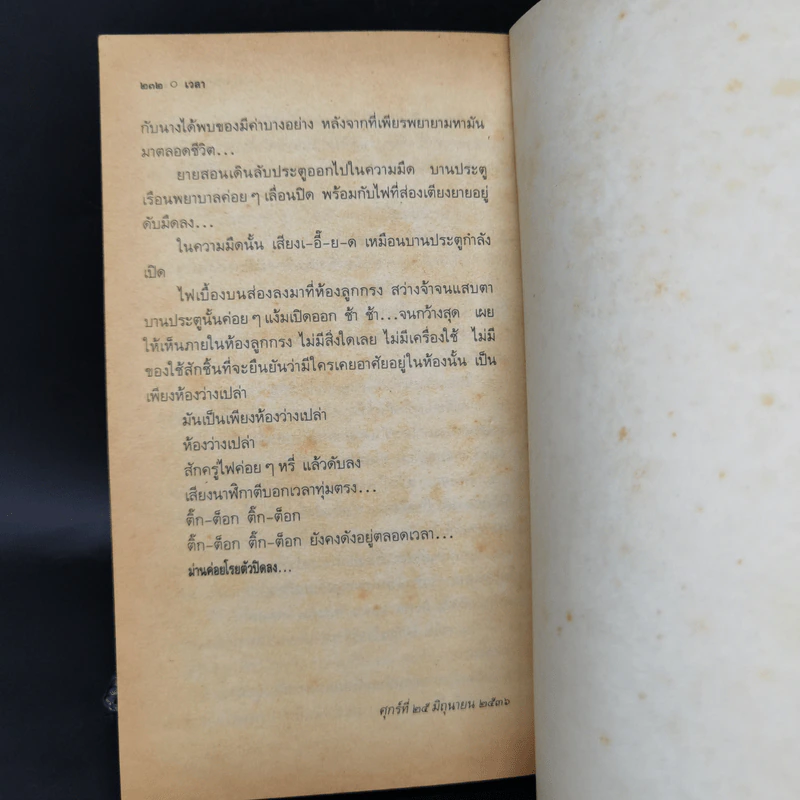 ๒๓๒ ○ เวลา
กับนางได้พบของมีค่าบางอย่าง หลังจากที่เพียรพยายามหามัน
มาตลอดชีวิต...
ยายสอนเดินลับประตูออกไปในความมืด บานประตู
เรือนพยาบาลค่อย ๆ เลื่อนปิด พร้อมกับไฟที่ส่องเตียงยายอยู่
ดับมืดลง...
ในความมืดนั้น เสียงเ-อี๊-ย-ด เหมือนบานประตูกำลัง
เปิด
ไฟเบื้องบนส่องลงมาที่ห้องลูกกรง สว่างจ้าจนแสบตา
บานประตูนั้นค่อย ๆ แง้มเปิดออก ช้า ช้า...จนกว้างสุด เผย
ให้เห็นภายในห้องลูกกรง ไม่มีสิ่งใดเลย ไม่มีเครื่องใช้ ไม่มี
ของใช้สักชิ้นที่จะยืนยันว่ามีใครเคยอาศัยอยู่ในห้องนั้น เป็น
เพียงห้องว่างเปล่า
มันเป็นเพียงห้องว่างเปล่า
ห้องว่างเปล่า
สักครู่ไฟค่อย ๆ หรี่ แล้วดับลง
เสียงนาฬิกาตีบอกเวลาทุ่มตรง...
ติ๊ก-ต็อก ติ๊ก-ต็อก
ติ๊ก-ต็อก ติ๊ก-ต็อก ยังคงดังอยู่ตลอดเวลา...
ม่านค่อยโรยตัวปิดลง...
ศุกร์ที่ ๒๕ มิถุนายน ๒๕๓๖